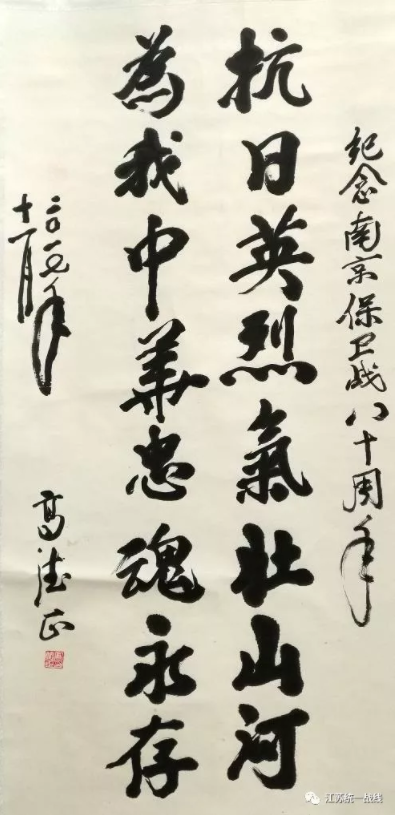 纪念南京保卫战八十周年
抗日英烈氣壯山河
為我中華忠魂永存
二〇一七年
十一月
高德正
江苏统一战线